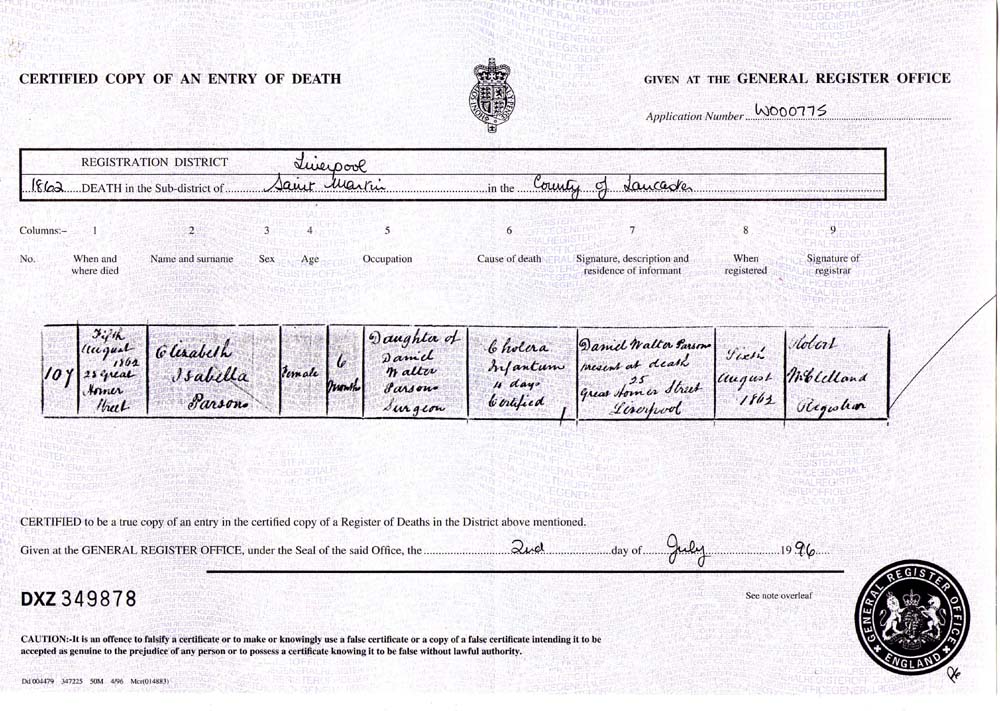 CERTIFIED COPY OF AN ENTRY OF DEATH
GIVEN AT THE GENERAL REGISTER OFFICE
Application Number W000775
REGISTRATION DISTRICT Liverpool
1862 DEATH in the Sub-district of Saint Martin in the County of Lancaster
Columns:- 1 2 3 4 5 6 7 8 9
No. When and where died Name and surname Sex Age Occupation Cause of death Signature, description and residence of informant When registered Signature of registrar
107
Fifth
August
1862
25 Great
Homer
Street
Elizabeth
Isabella
Parsons
Female
6
Months
Daughter of
Daniel
Walter
Parsons
Surgeon
Cholera
Infantum
4 days
Certified
Daniel Walter Parsons
present at death
25
Great Homer Street
Liverpool
Sixth
August
1862
Robert
McClelland
Registrar
CERTIFIED to be a true copy of an entry in the certified copy of a Register of Deaths in the District above mentioned.
Given at the GENERAL REGISTER OFFICE, under the Seal of the said Office, the 2nd day of July 1996
DXZ 349878
See note overleaf
CAUTION:-It is an offence to falsify a certificate or to make or knowingly use a false certificate or a copy of a false certificate intending it to be
accepted as genuine to the prejudice of any person or to possess a certificate knowing it to be false without lawful authority.
Dd 004479 347225 50M 4/96 Mcr(014883)
GENERAL REGISTER OFFICE
ENGLAND